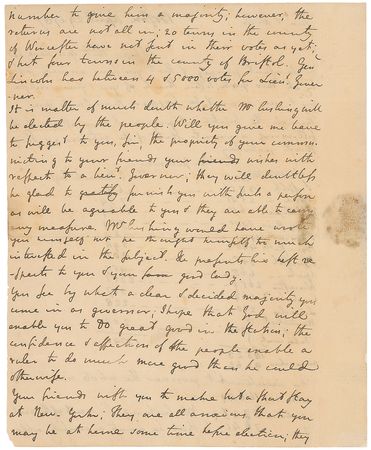 number to give him a majority; however, the
returns are not all in, 20 towns in the county
of Worcester have not sent in their votes as yet,
& but four towns in the county of Bristol. Genl
Lincoln has between 4 & 5000 votes for Lieut. Gover
ner.
It is matter of much doubt whether Mr Cushing will
be elected by the people. Will you give me leave
to suggest to you, Sir, the propriety of your commu-
nicating to your friends your friends wishes with
respect to a Lieut. Governor; they will doubtless
be glad to gratify furnish you with such a person
as will be agreeable to you & they are able to carry
any measure. Mr Cushing would have wrote
you himself but he thought himself too much
interested in the subject. He presents his best re-
spects to you & your good lady.
You see by what a clear & decided majority you
come in as governor, I hope that God will
enable you to do great good in the station; the
confidence & affection of the people enable a
ruler to do much more good than he could
otherwise.
Your friends wish you to make but a short stay
at New-York; They are all anxious that you
may be at home some time before election; they